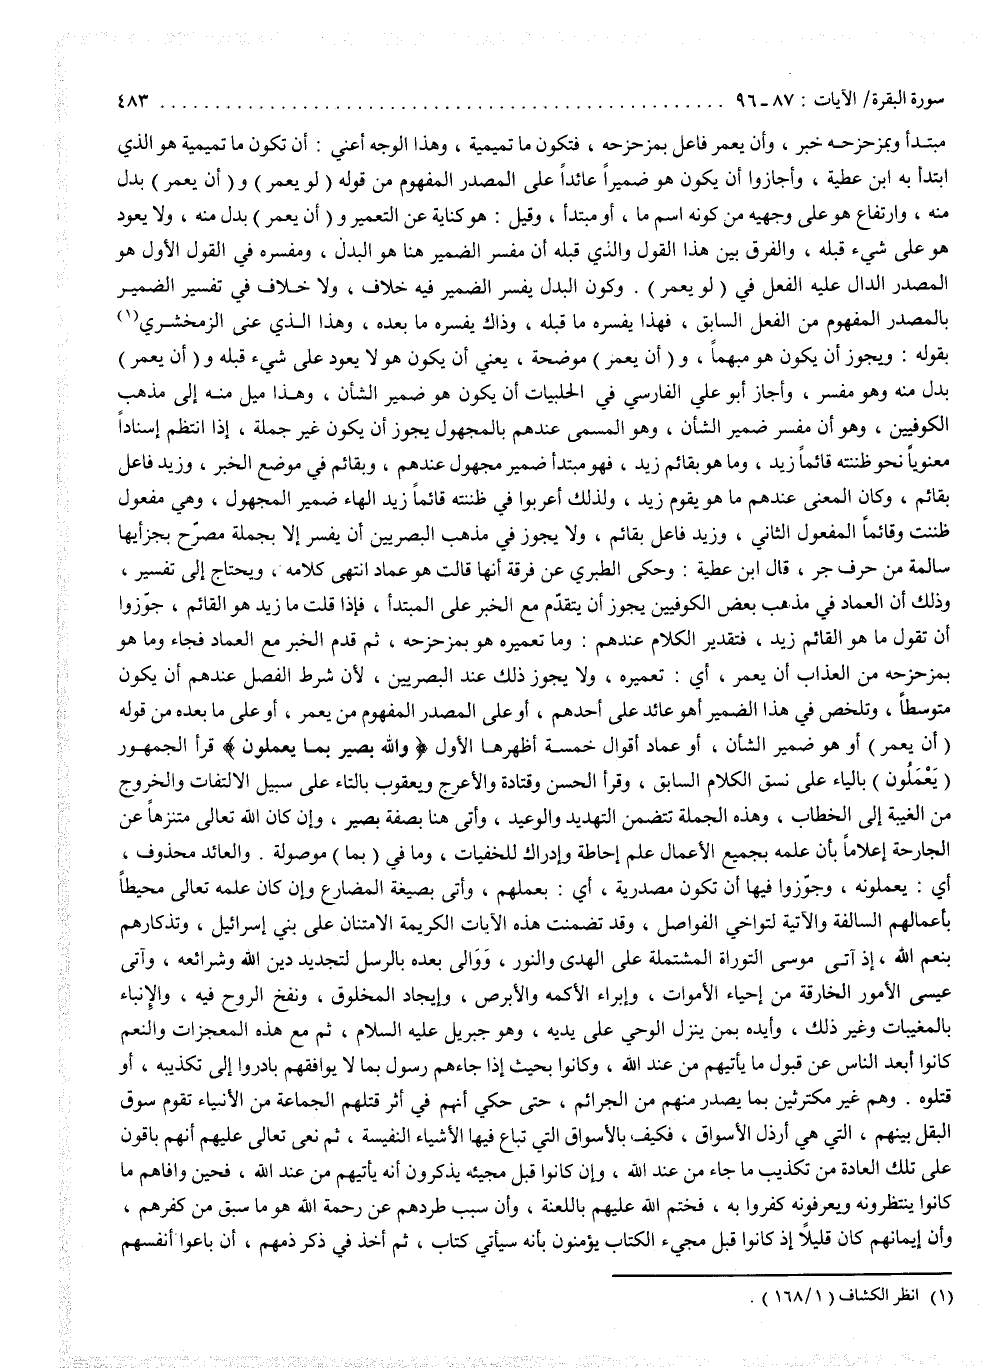 سورة البقرة/ الآيات : ٨٧ ـ ٩٦ ........................................................ ٤٨٣
مبتدأ وبمزحزحه خبر ، وأن يعمر فاعل بمزحزحه ، فتكون ما تميمية ، وهذا الوجه أعني : أن تكون ما تميمية هو الذي
ابتدأ به ابن عطية ، وأجازوا أن يكون هو ضميراً عائداً على المصدر المفهوم من قوله ( لو يعمر ) و ( أن يعمر ) بدل
منه ، وارتفاع هو على وجهيه من كونه اسم ما ، أو مبتدأ ، وقيل : هو كناية عن التعمير و ( أن يعمر ) بدل منه ، ولا يعود
هو على شيء قبله ، والفرق بين هذا القول والذي قبله أن مفسر الضمير هنا هو البدل ، ومفسره في القول الأول هو
المصدر الدال عليه الفعل في ( لو يعمر ) . وكون البدل يفسر الضمير فيه خلاف ، ولا خلاف في تفسير الضمير
بالمصدر المفهوم من الفعل السابق ، فهذا يفسره ما قبله ، وذاك يفسره ما بعده ، وهذا الذي عنى الزمخشري(١)
بقوله : ويجوز أن يكون هو مبهماً ، و ( أن يعمر ) موضحة ، يعني أن يكون هو لا يعود على شيء قبله و ( أن يعمر )
بدل منه وهو مفسر ، وأجاز أبو علي الفارسي في الحلبيات أن يكون هو ضمير الشأن ، وهذا ميل منه إلى مذهب
الكوفيين ، وهو أن مفسر ضمير الشأن ، وهو المسمى عندهم بالمجهول يجوز أن يكون غير جملة ، إذا انتظم إسناداً
معنوياً نحو ظننته قائماً زيد ، وما هو بقائم زيد ، فهو مبتدأ ضمير مجهول عندهم ، وبقائم في موضع الخبر ، وزيد فاعل
بقائم ، وكان المعنى عندهم ما هو يقوم زيد ، ولذلك أعربوا في ظننته قائماً زيد الهاء ضمير المجهول ، وهي مفعول
ظننت وقائماً المفعول الثاني ، وزيد فاعل بقائم ، ولا يجوز في مذهب البصريين أن يفسر إلا بجملة مصرّح بجزأيها
سالمة من حرف جر ، قال ابن عطية : وحكى الطبري عن فرقة أنها قالت هو عماد انتهى كلامه ، ويحتاج إلى تفسير ،
وذلك أن العماد في مذهب بعض الكوفيين يجوز أن يتقدّم مع الخبر على المبتدأ ، فإذا قلت ما زيد هو القائم ، جوّزوا
أن تقول ما هو القائم زيد ، فتقدير الكلام عندهم : وما تعميره هو بمزحزحه ، ثم قدم الخبر مع العماد فجاء وما هو
بمزحزحه من العذاب أن يعمر ، أي : تعميره ، ولا يجوز ذلك عند البصريين ، لأن شرط الفصل عندهم أن يكون
متوسطاً ، وتلخص في هذا الضمير أهو عائد على أحدهم ، أو على المصدر المفهوم من يعمر ، أو على ما بعده من قوله
( أن يعمر ) أو هو ضمير الشأن ، أو عماد أقوال خمسة أظهرها الأول ﴿ والله بصير بما يعملون ﴾ قرأ الجمهور
( يَعْمَلُون ) بالياء على نسق الكلام السابق ، وقرأ الحسن وقتادة والأعرج ويعقوب بالتاء على سبيل الالتفات والخروج
من الغيبة إلى الخطاب ، وهذه الجملة تتضمن التهديد والوعيد ، وأتى هنا بصفة بصير ، وإن كان الله تعالى متنزهاً عن
الجارحة إعلاماً بأن علمه بجميع الأعمال علم إحاطة وإدراك للخفيات ، وما في ( بما ) موصولة . والعائد محذوف ،
أي : يعملونه ، وجوّزوا فيها أن تكون مصدرية ، أي : بعملهم ، وأتى بصيغة المضارع وإن كان علمه تعالى محيطاً
بأعمالهم السالفة والآتية لتواخي الفواصل ، وقد تضمنت هذه الآيات الكريمة الامتنان على بني إسرائيل ، وتذكارهم
بنعم الله ، إذ آتى موسى التوراة المشتملة على الهدى والنور ، وَوَالى بعده بالرسل لتجديد دين الله وشرائعه ، وآتى
عيسى الأمور الخارقة من إحياء الأموات ، وإبراء الأكمه والأبرص ، وإيجاد المخلوق ، ونفخ الروح فيه ، والإنباء
بالمغيبات وغير ذلك ، وأيده بمن ينزل الوحي على يديه ، وهو جبريل عليه السلام ، ثم مع هذه المعجزات والنعم
كانوا أبعد الناس عن قبول ما يأتيهم من عند الله ، وكانوا بحيث إذا جاءهم رسول بما لا يوافقهم بادروا إلى تكذيبه ، أو
قتلوه . وهم غير مكترثين بما يصدر منهم من الجرائم ، حتى حكي أنهم في أثر قتلهم الجماعة من الأنبياء تقوم سوق
البقل بينهم ، التي هي أرذل الأسواق ، فكيف بالأسواق التي تباع فيها الأشياء النفيسة ، ثم نعى تعالى عليهم أنهم باقون
على تلك العادة من تكذيب ما جاء من عند الله ، وإن كانوا قبل مجيئه يذكرون أنه يأتيهم من عند الله ، فحين وافاهم ما
كانوا ينتظرونه ويعرفونه كفروا به ، فختم الله عليهم باللعنة ، وأن سبب طردهم عن رحمة الله هو ما سبق من كفرهم ،
وأن إيمانهم كان قليلاً إذ كانوا قبل مجيء الكتاب يؤمنون بأنه سيأتي كتاب ، ثم أخذ في ذكر ذمهم ، أن باعوا أنفسهم
(١) انظر الكشاف ( ١/ ١٦٨ ) .